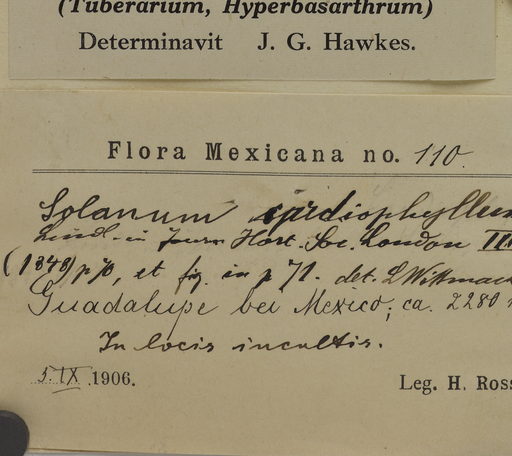 (Tuberarium, Hyperbasarthrum)
Determinavit J. G. Hawkes.
Flora Mexicana no. 110.
Solanum cardiophyllum
Lindl. in Journ. Hort. Soc. London III
(1848) p 70, et fig. in p 71. det. L Wittmack
Guadalupe bei Mexico; ca. 2280
In locis incultis.
5. IX .1906.
Leg. H. Ross